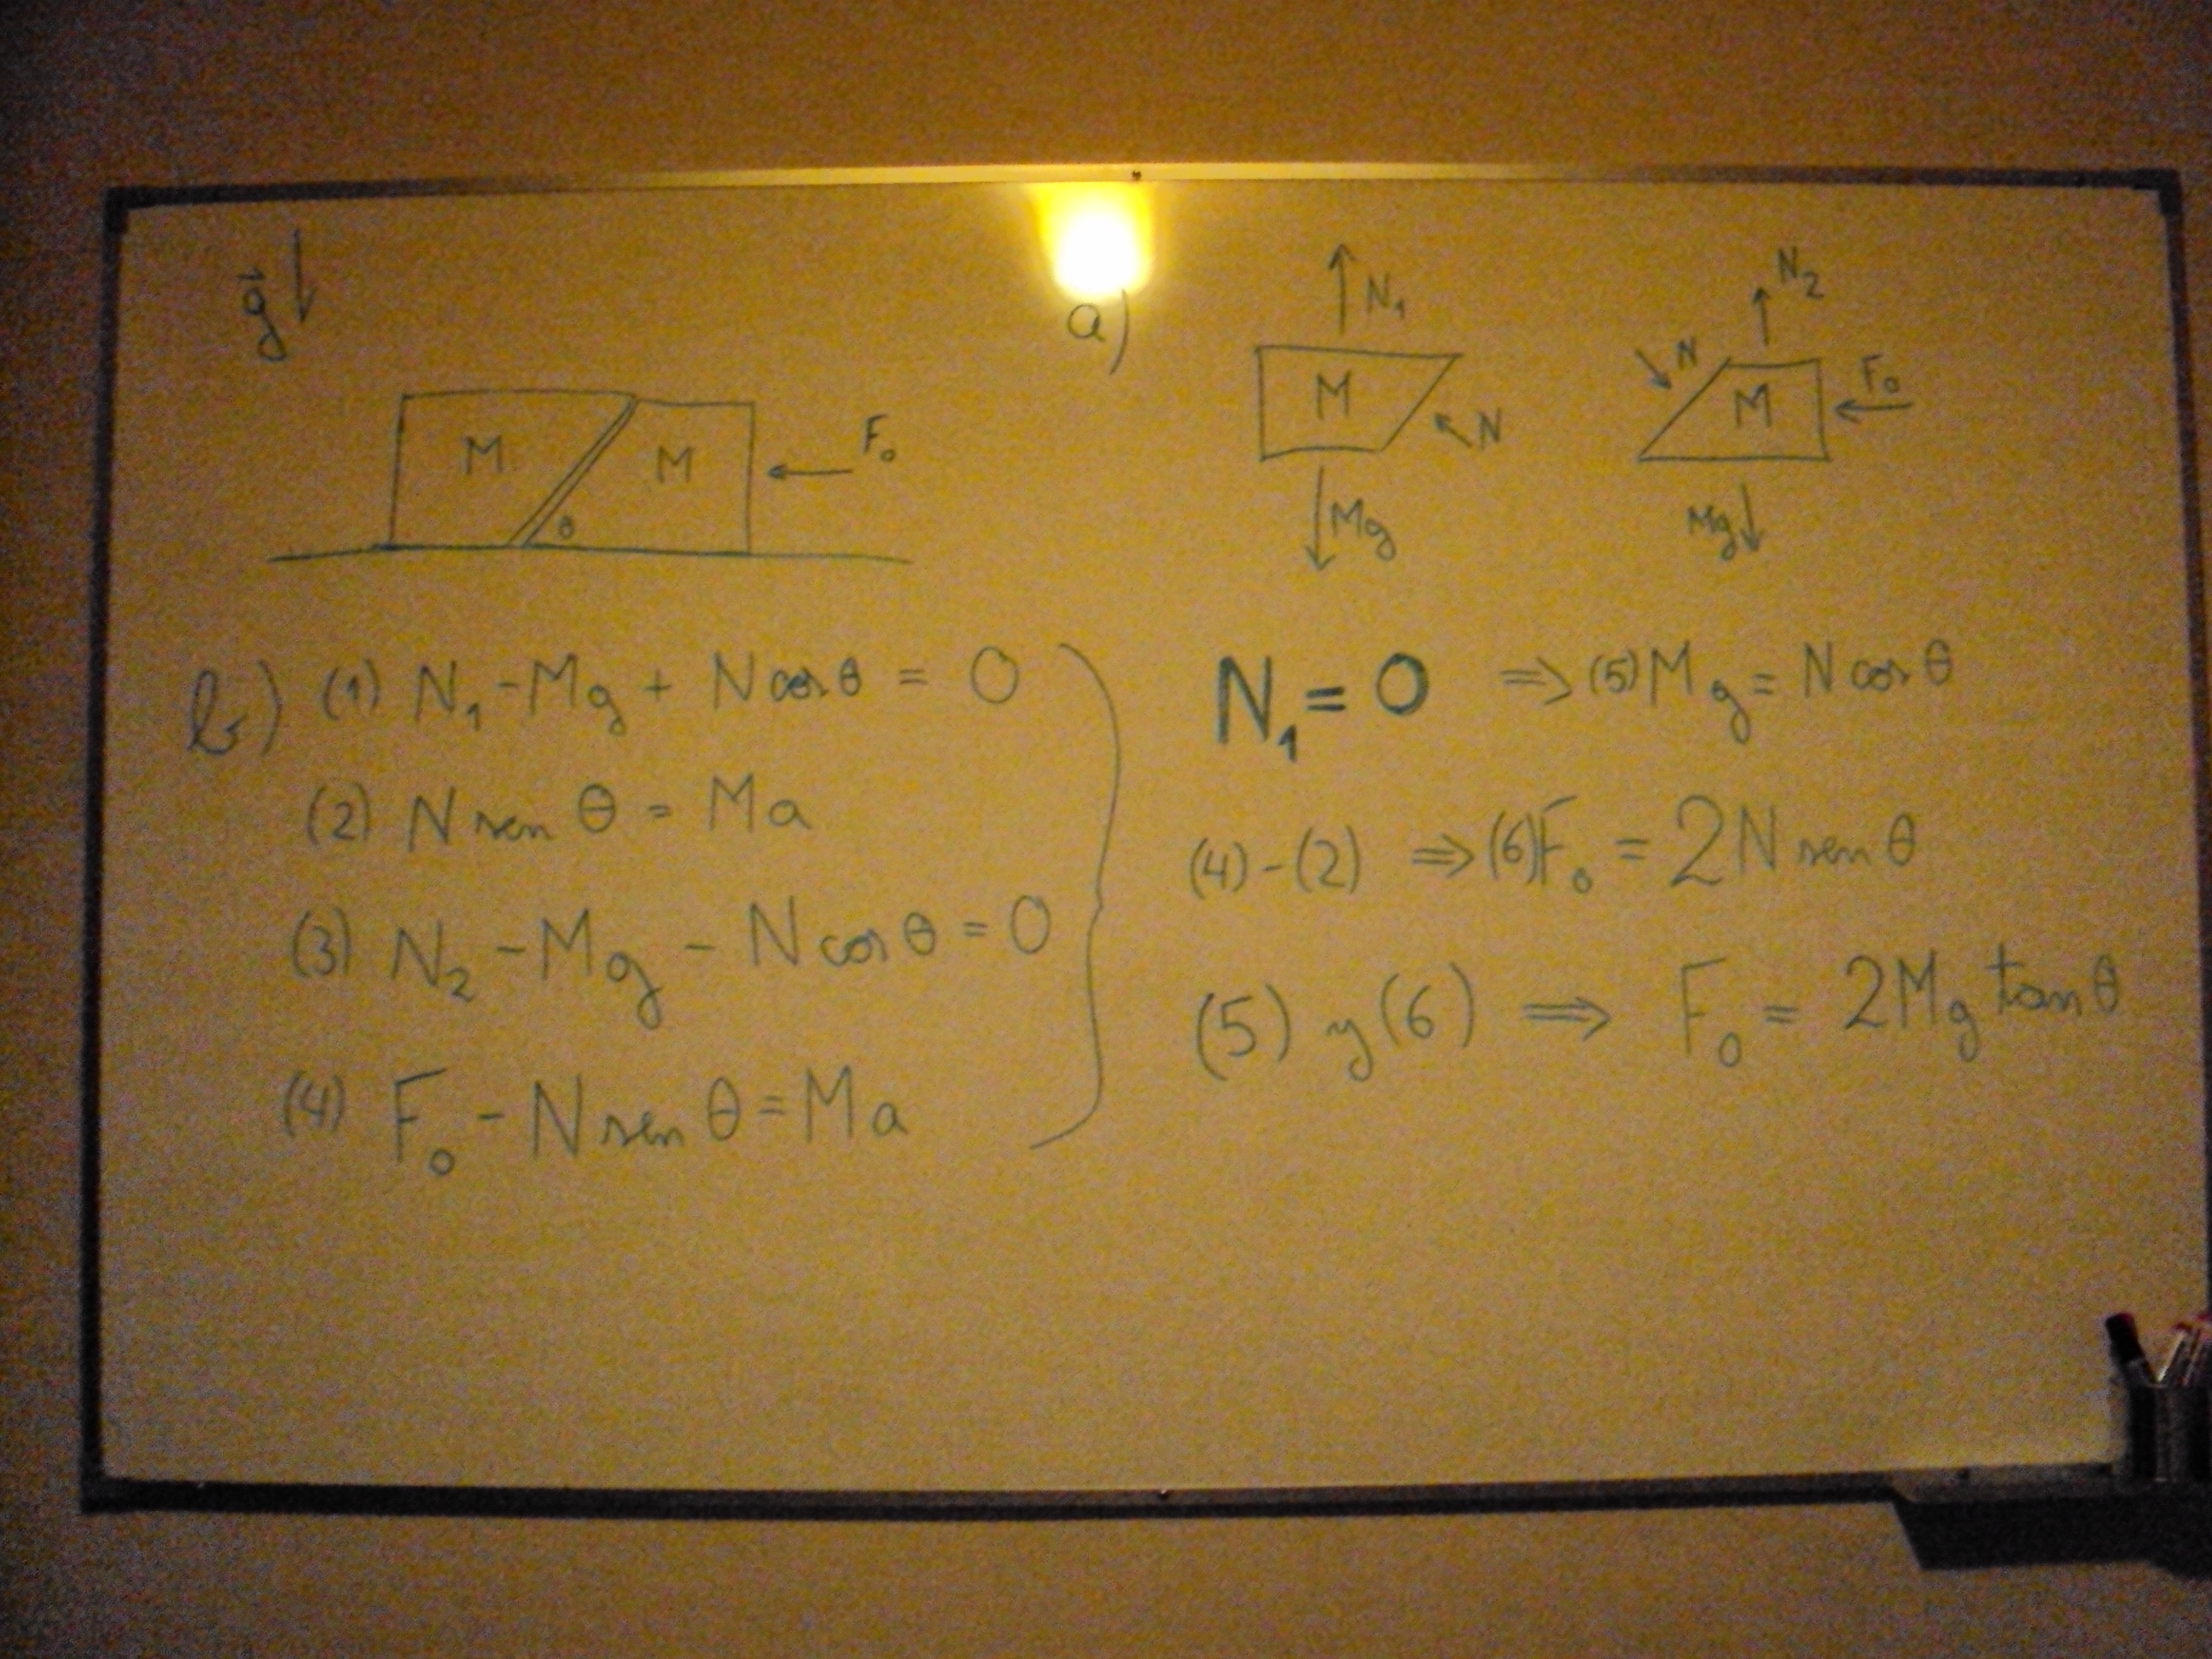 g⃗
M M F₀
θ
a)
N₁ N₂
M N N M F₀
Mg Mg
b) (1) N₁ - Mg + N cos θ = 0
(2) N sen θ = Ma
(3) N₂ - Mg - N cos θ = 0
(4) F₀ - N sen θ = Ma
N₁ = 0 ⇒ (5) Mg = N cos θ
(4) - (2) ⇒ (6) F₀ = 2N sen θ
(5) y (6) ⇒ F₀ = 2Mg tan θ